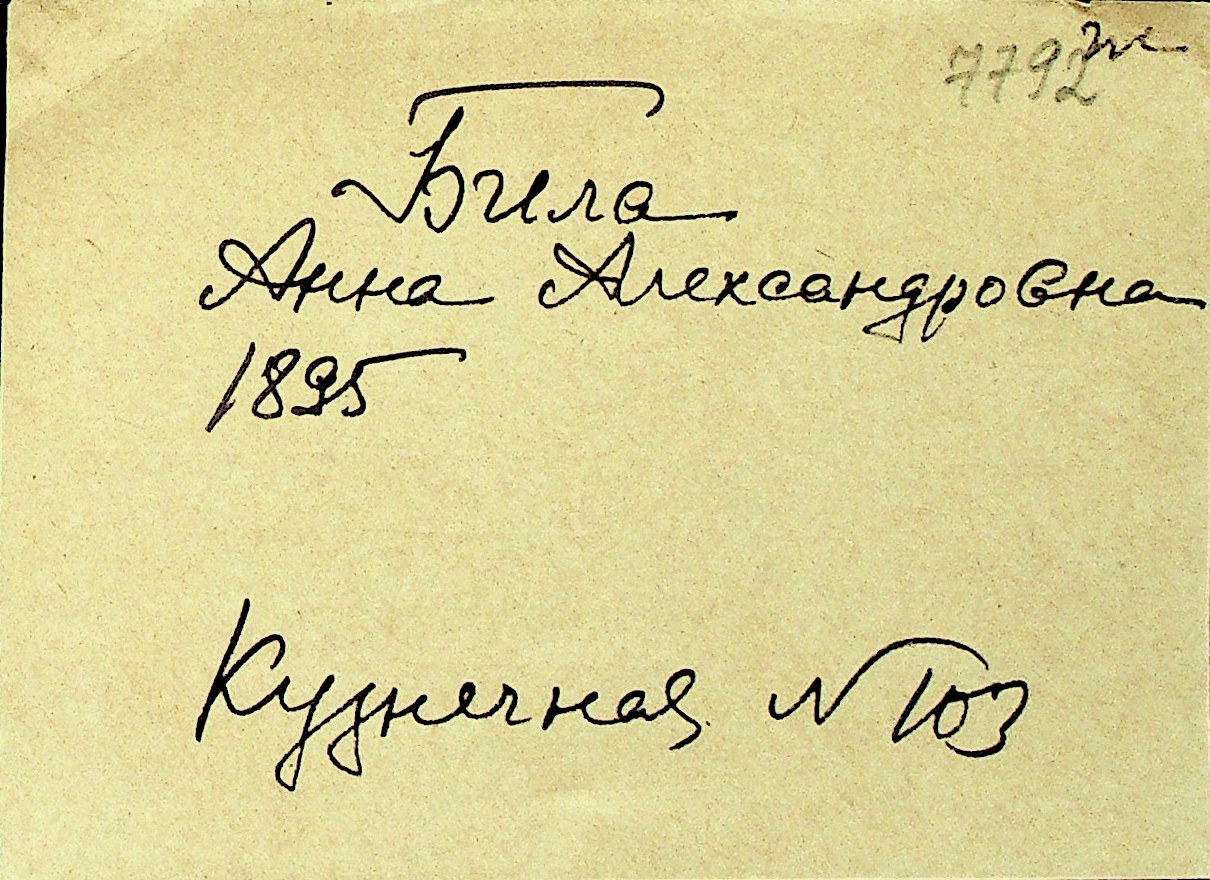 7792
Била
Анна Александровна
1895
Кузнечная № 103